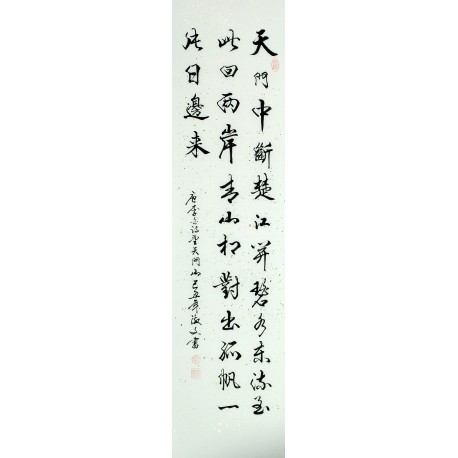 天門中斷楚江開碧水東流至
此回兩岸青山相對出孤帆一
片日邊来
唐李白詩望天門山己丑海文書